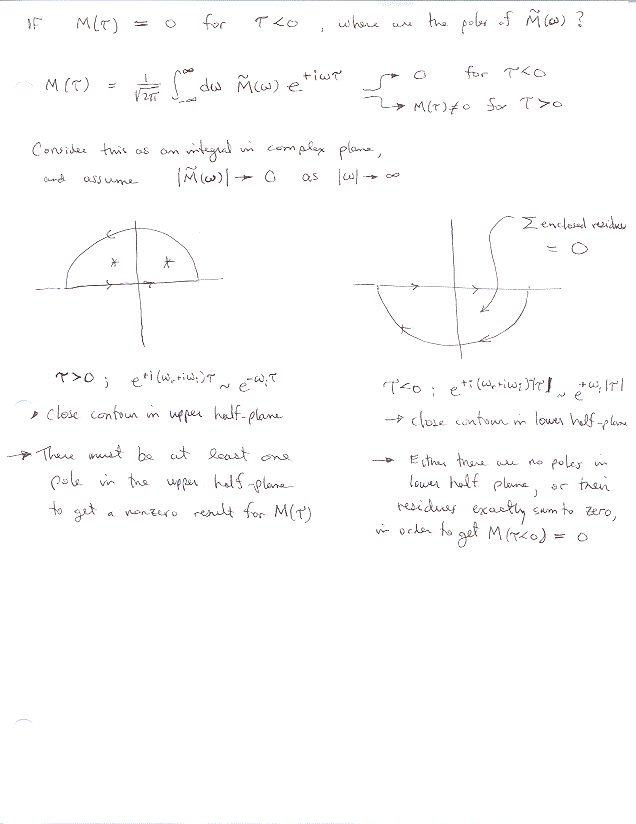 IF M(τ) = 0 for τ<0 , where are the poles of M̃(ω) ?
M(τ) = 1/√2π ∫_{-∞}^{∞} dω M̃(ω) e^{+iωτ} → 0 for τ<0
→ M(τ)≠0 for τ>0
Consider this as an integral in complex plane,
and assume |M̃(ω)| → 0 as |ω| → ∞
Σ enclosed residues
= 0
τ>0 ; e^{+i(ω_r+iω_i)τ} ~ e^{-ω_iτ}
→ close contour in upper half-plane
→ There must be at least one
pole in the upper half-plane
to get a nonzero result for M(τ)
τ<0 ; e^{+i(ω_r+iω_i)|τ|} ~ e^{+ω_i|τ|}
→ close contour in lower half-plane
→ Either there are no poles in
lower half plane, or their
residues exactly sum to zero,
in order to get M(τ<0) = 0